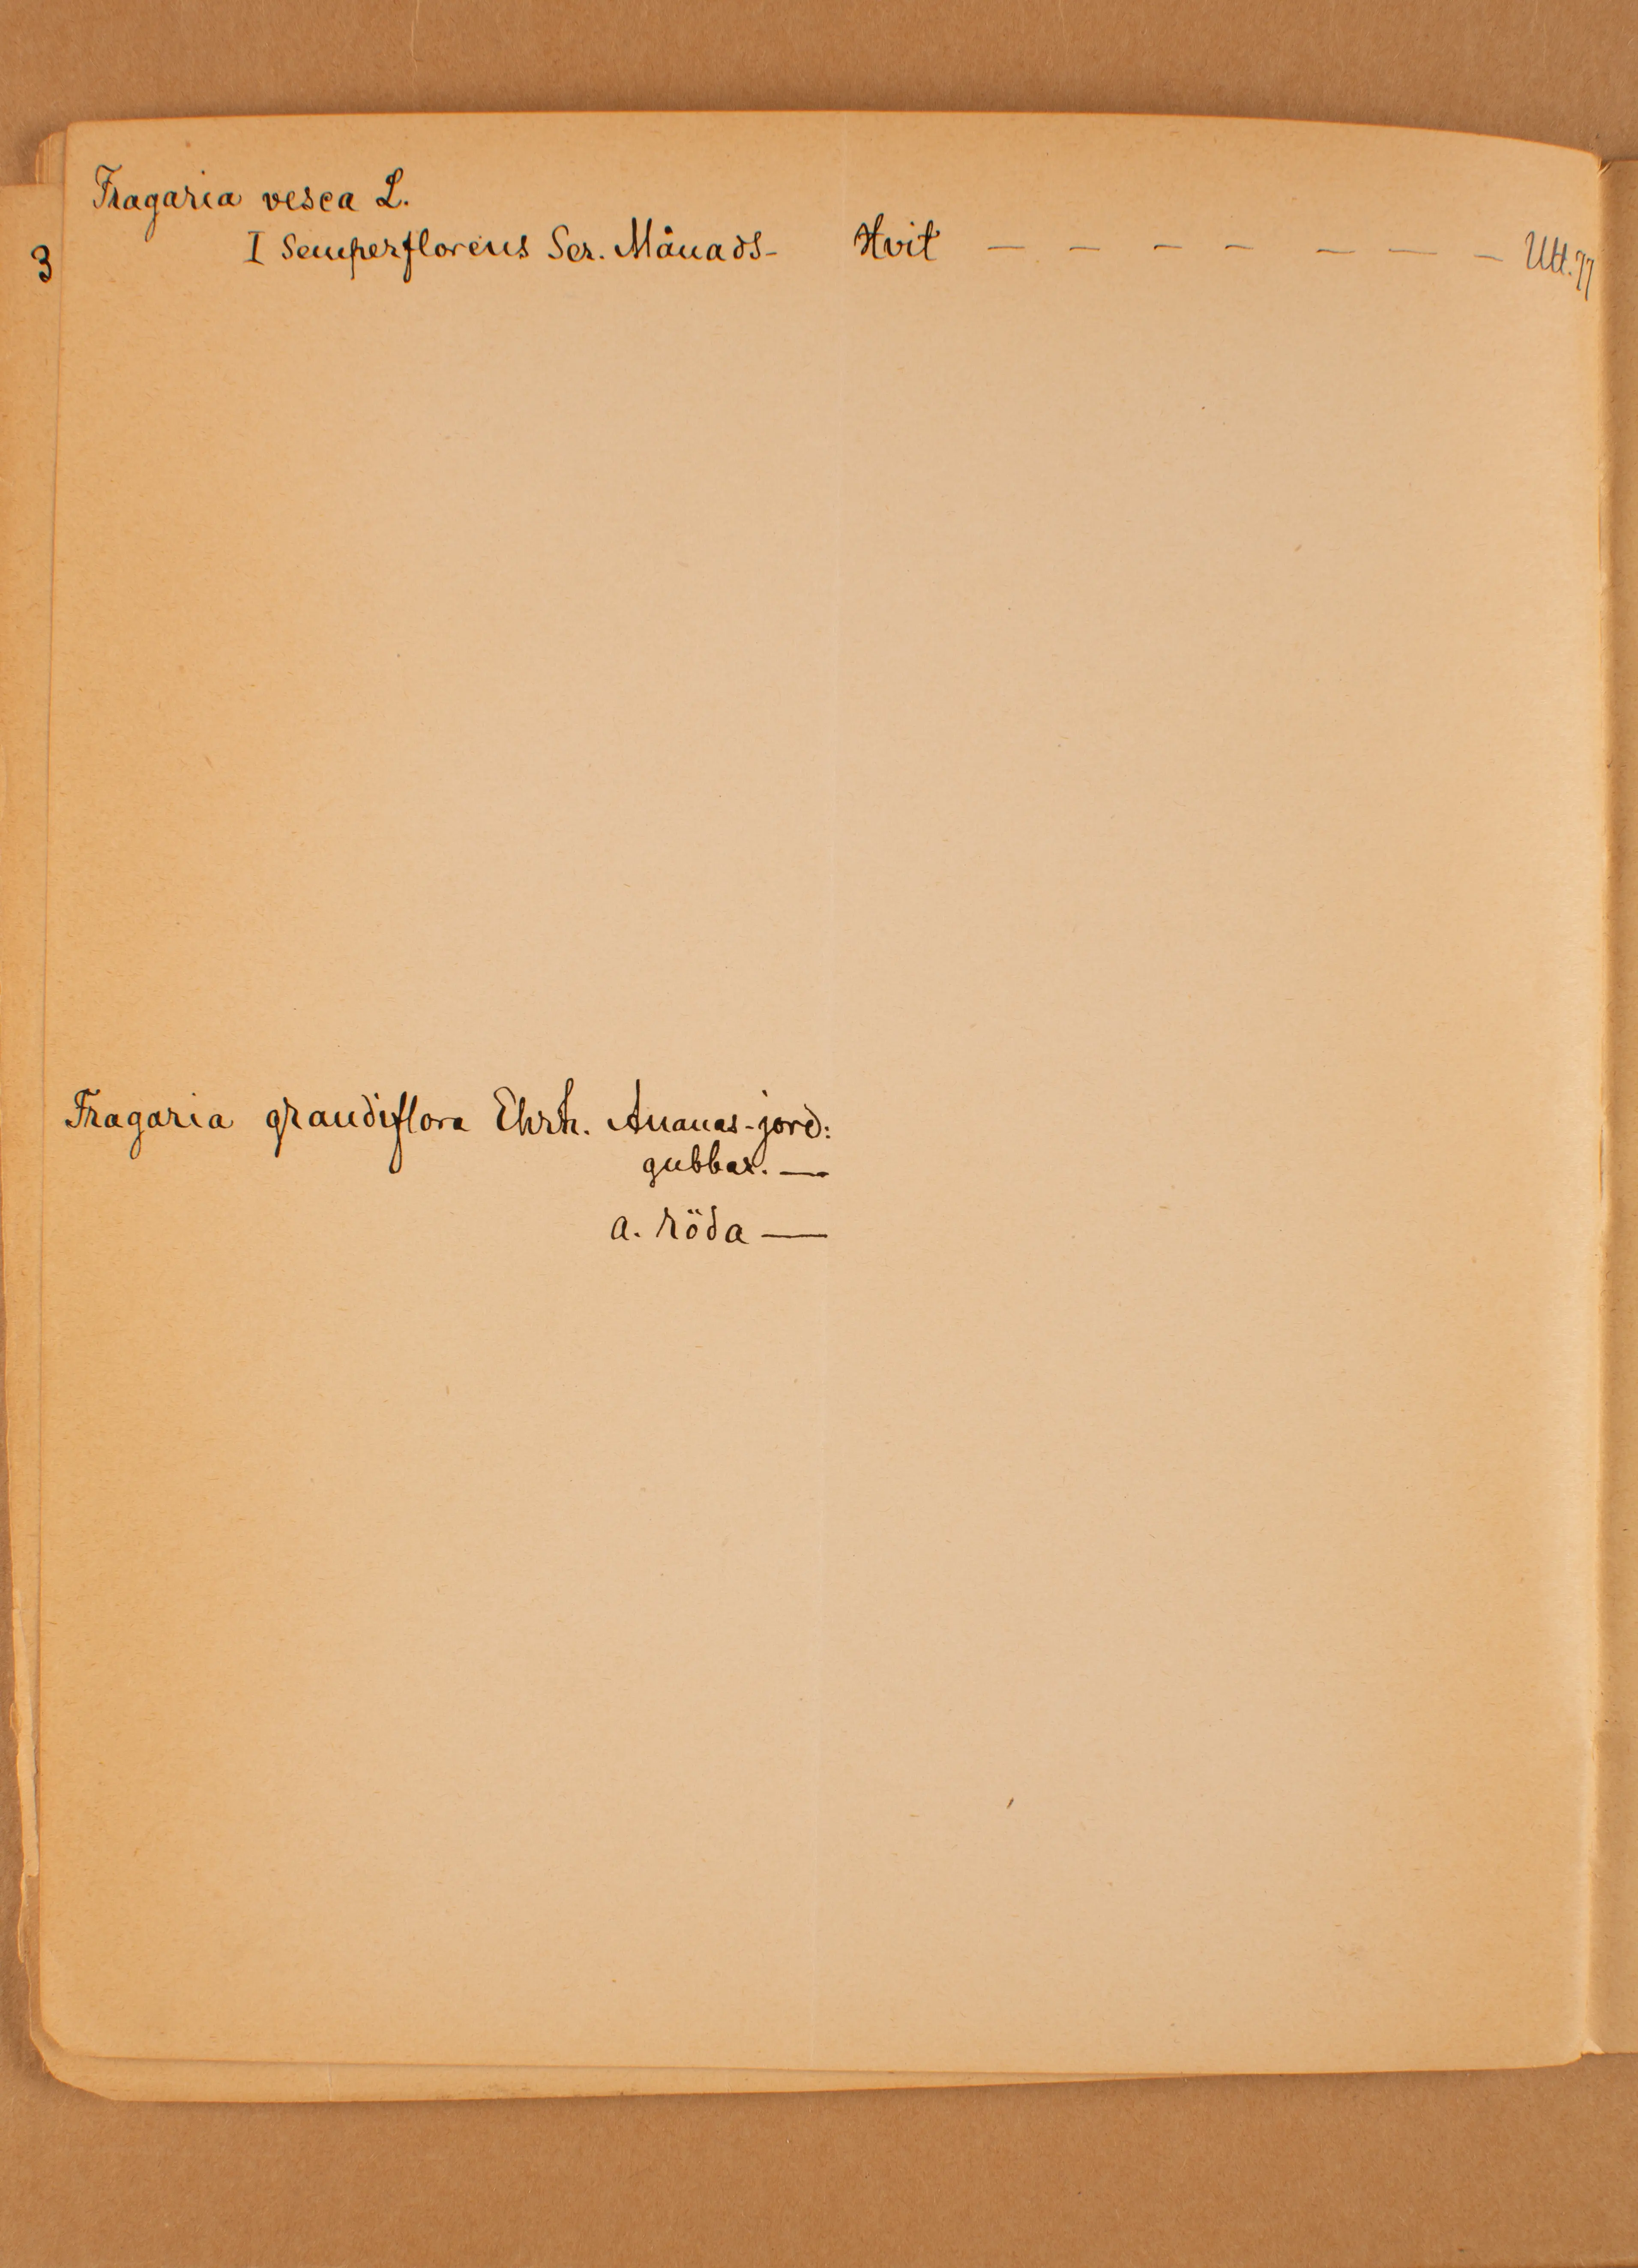 Fragaria vesca L.
3 I semperflorens Ser. Månads- Hvit — — — — — — — Utt. 77
Fragaria grandiflora Ehrh. Ananas-jord:
gubbar. —
a. röda —